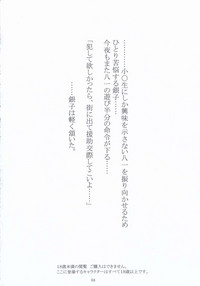 ………小○生にしか興味を示さない八一を振り向かせるため
ひとり苦悩する銀子………
今夜もまた八一の遊び半分の命令が下る………
「犯して欲しかったら、街に出て援助交際してこいよ………」
………銀子は軽く頷いた。
18歳未満の閲覧、ご購入はできません。
ここに登場するキャラクターはすべて18歳以上です。